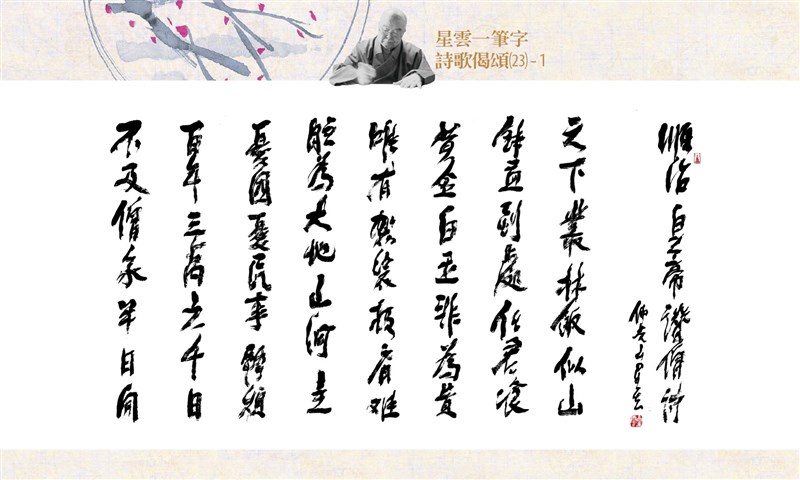 星雲一筆字
詩歌偈頌(23)–1
順治皇帝讚僧詩
佛光山星雲
天下叢林飯似山
鉢盂到處任君湌
黃金白玉非為貴
唯有袈裟披肩難
朕為大地山河主
憂國憂民事轉煩
百年三萬六千日
不及僧家半日閒